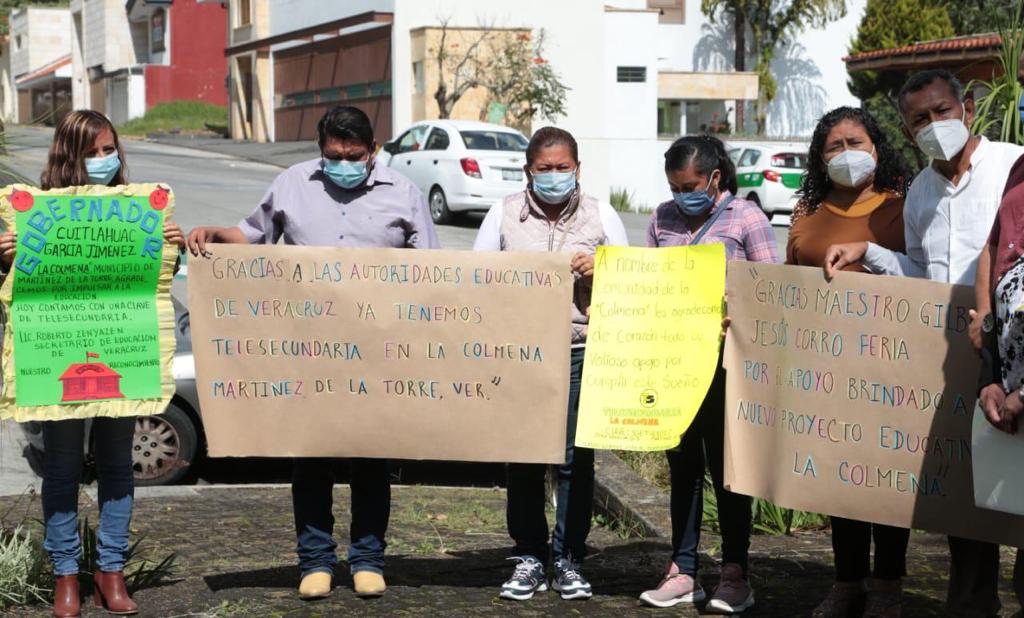 GOBERNADOR
CUITLAHUAC
GARCIA JIMÉNEZ
"LA COLMENA" MUNICIPIO DE
MARTÍNEZ DE LA TORRE, AGRADE
CEMOS POR IMPULSAR A LA
EDUCACIÓN
HOY CONTAMOS CON UNA CLAVE
DE TELESECUNDARIA.
LIC. ROBERTO ZENYAZEN
SECRETARIO DE EDUCACIÓN
DE VERACRUZ
NUESTRO RECONOCIMIENTO
GRACIAS A LAS AUTORIDADES EDUCATIVAS
DE VERACRUZ YA TENEMOS
TELESECUNDARIA EN LA COLMENA
MARTINEZ DE LA TORRE, VER."
A nombre de la
Comunidad de la
"Colmena" les agradecemos
de Corazón todo su
Valioso apoyo por
Cumplir este Sueño.
TELESECUNDARIA
LA COLMENA
"GRACIAS MAESTRO
JESÚS CORRO FERIA
POR EL APOYO BRINDADO A
NUEVO PROYECTO EDUCATIVO
LA COLMENA."